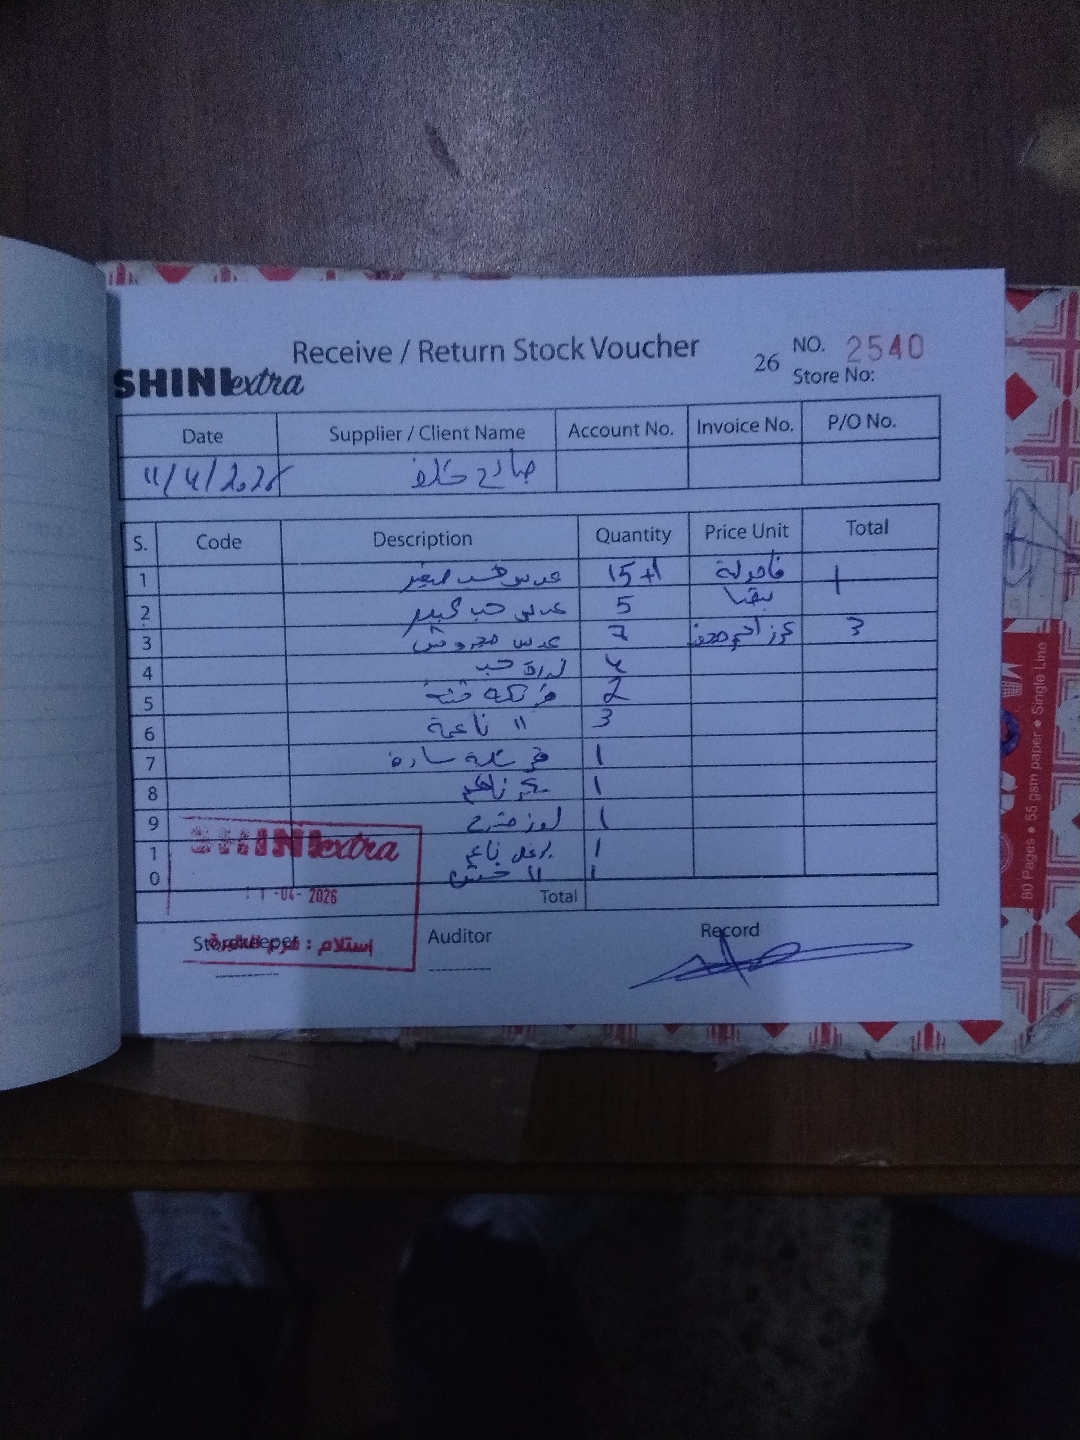 Receive / Return Stock Voucher
SHINIextra
26 NO. 2540
Store No:
Date Supplier / Client Name Account No. Invoice No. P/O No.
11/4/202 صالح خلف
S. Code Description Quantity Price Unit Total
1 عدس حب صغير 15+1 فاصولية 1
2 عدس حب كبير 5
3 عدس مجروش 7 3
4 لدرة حب 4
5 2
6 " ناعمة 3
7 سادة 1
8 سكر ناعم 1
9 لوز 1
10 برغل ناعم 1
" خشن 1
Total
SHINIextra
11 -04- 2026
استلام :
Storekeeper Auditor Record
80 Pages • 55 gsm paper • Single Line